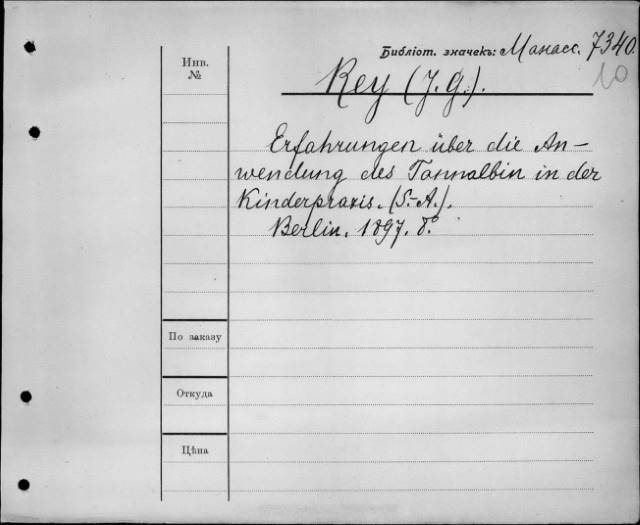 Библіот. значекъ: Манасс. 7340.
10
Инв.
№
Rey (J. G.).
Erfahrungen über die An-
wendung des Tannalbin in der
Kinderpraxis. (S.-A.).
Berlin. 1897. 8°.
По заказу
Откуда
Цѣна